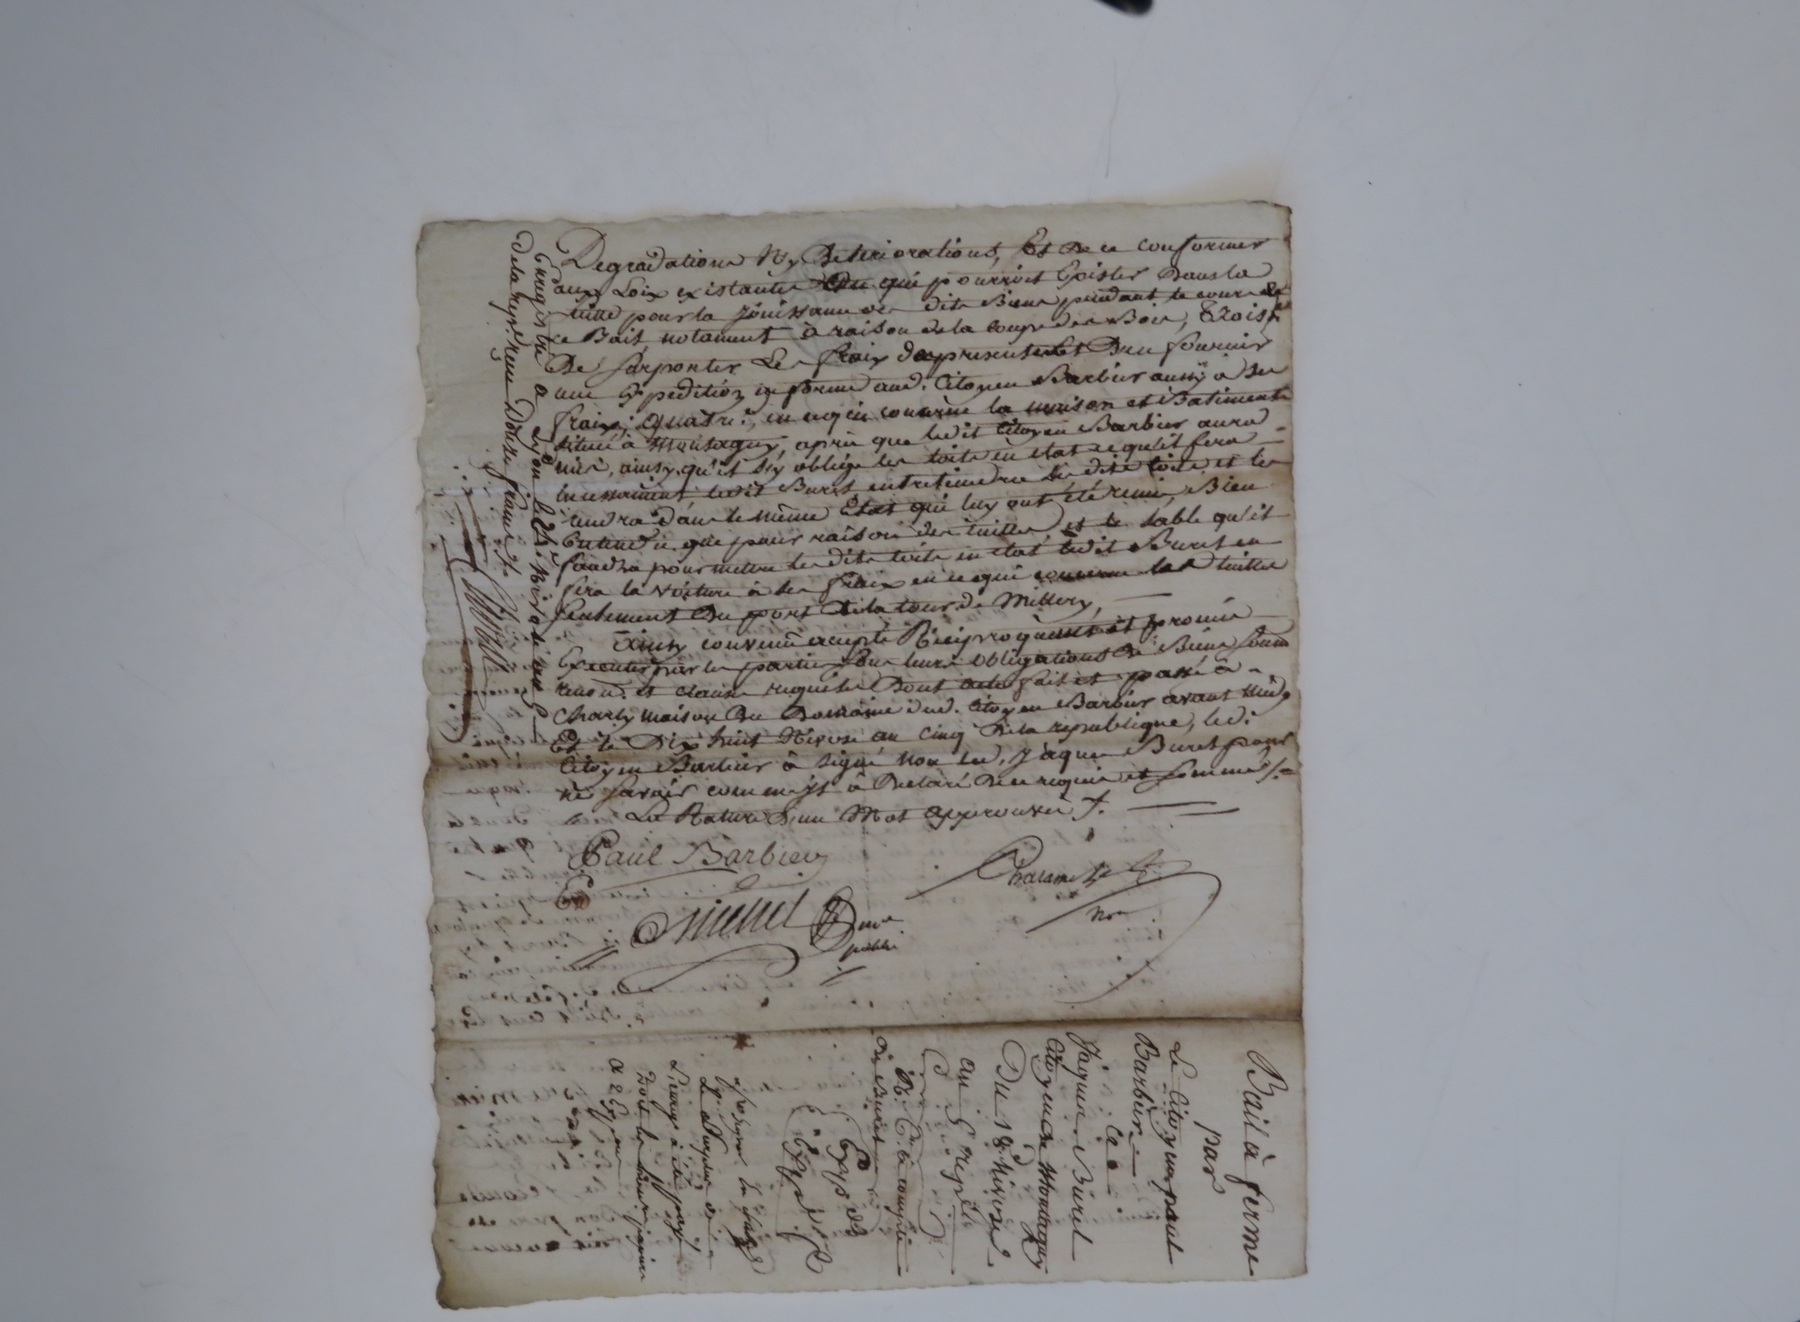 Degradations Ny Deteriorations, Et De ce conformer
aux Loix existantes Ou qui pourroient Exister Dans la
suitte pour la Jöuissance des dits Biens pendant le cours de
ce Bail, notament à raison de la coupe des Bois, Troisme
De Suporter Les fraix des presentes Et D'en fournir
une Expedition en forme aud. Citoyen Barbier aussÿ à ses
fraix; Quatre. en ce qui concerne la maison et Batiments
situés à Montagny, après que ledit Citoyen Barbier aura
mis, ainsy qu'il s'y oblige les toits en etat ce qu'il fera
incessament, ledit Buret entretiendra les dits toits et les
rendra dans le même Etat qui luy ont été remis, Bien
Entendu que pour raison des tuilles, et le sable qu'il
faudra pour mettre les dits toits en etat, ledit Buret en
fera la voiture à ses fraix en ce qui concerne les tuilles
seulement Du port De la tour de Millery,
Ainsy convenu accepté Réciproquement et promis
Executer par les parties sous leurs obligations De Biens soum
renon. et clauses requises Dont acte fait et passé à
Charly maison Du Domaine dud. Citoyen Barbier avant midy
Et le Dix huit Nivose an cinq De la republique, led.
Citoyen Barbier à signé non led. Jàques Buret pour
ne savoir comme il à Déclaré De ce requis et sommé /.
La Rature D'un Mot approuvée /.
Paul Barbier
Michel
nre
public
nre
Enregistré à Lyon le 24. Nivose an 5
De la rep. reçu Douze francs
Bail à ferme
par
Le Citoyen paul
Barbier
à
Jàques Buret
Citoyen de Montagny
Du 18 Nivose
an 5 repub.